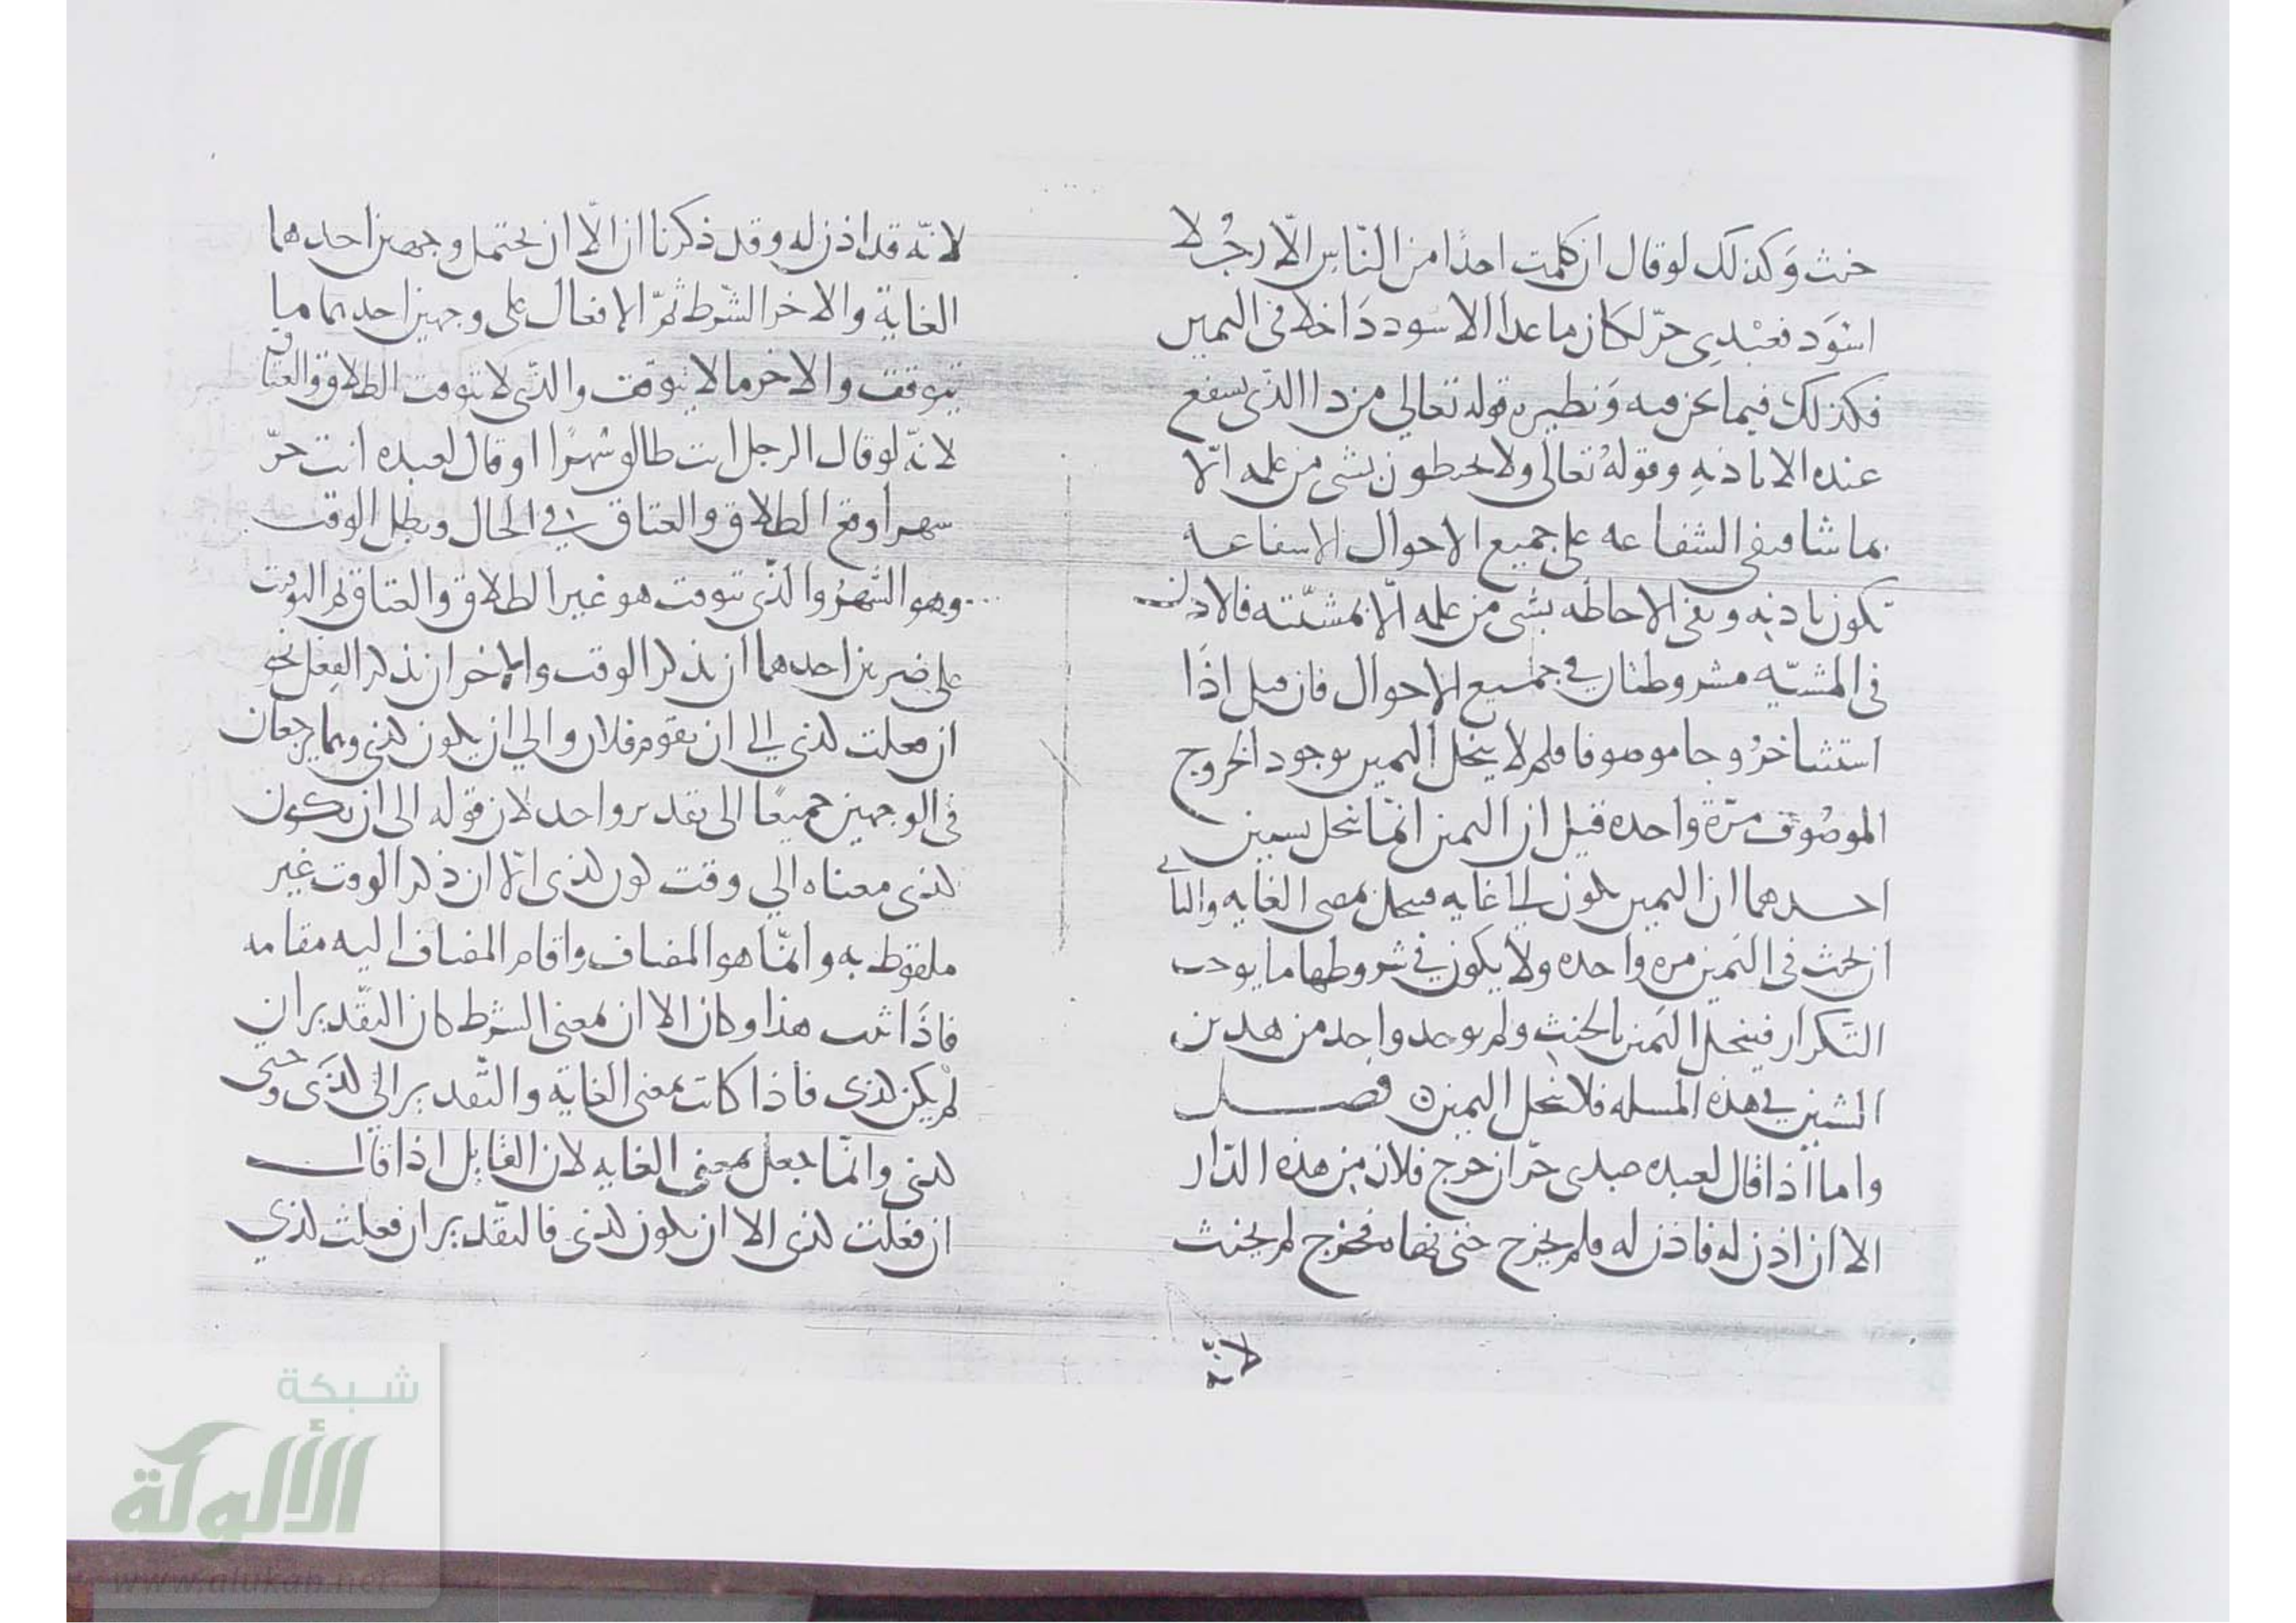 حنث وَكذلك لو قال ان كلمت احدًا من النّاس الّا رجُلا
اسْوَد فعبْدِى حرّ لكان ما عدا الاسود دَاخلا فى اليمين
فكذلك فيما نحن فيه وَنظيره قوله تعالي من ذا الذّى يشفع
عنده الا باذنهِ وقولهُ تعالى ولا يحيطون بشى من علمه الّا
بما شا فنفى الشفاعه على جميع الاحوال الا شفاعه
تكون باذنه ونفى الاحاطه بشى من علمه الّا بمشيّته فالاذن
فى المشيّه مشروطتان في جميع الاحوال فان قيل اذَا
استثنا خرُوجا موصوفا فلم لا ينحل اليمين بوجود الخروج
الموصُوف مرّة واحده قيل ان اليمين انمّا تنحل بسببين
احدهما ان اليمين يكون لها غايه فينحل بمضى الغايه والثانى
ان يحنث فى اليَمين مره واحده ولا يكون في شروطها ما يوجب
التّكرار فينحل اليَمين بالحنث ولم يوجد واحد من هذين
الشيئين في هذه المسله فلا ينحل اليمين فصل
واما اذا قال لعبده عبدى حرّ ان خرج فلان من هذه الدّار
الا ان اذن له فاذن له فلم يخرج حتى نهاه فخرج لم يحنث
لانّه
لانّه قد اذن له وقد ذكرنا ان الّا ان يحتمل وجهين احدهما
الغاية والاخر الشّرط ثمّ الافعال على وجهين احدهما ما
يتوقت والاخر ما لا يتوقّت والذّى لا يتوقت الطلاق والعتاق
لانّه لو قال الرجل انت طالق شهرًا او قال لعبده انت حرّ
شهرا وقع الطلاق والعتاق في الحال وبطل الوقت
وهو الشهرُ والذّى يتوقت هو غير الطلاق والعتاق ثم التوقيت
على ضربين احدهما ان يذكر الوقت والاخر ان يذكر الفِعل نحو
ان فعلت كذى الي ان يقوم فلان والي ان يكون كذى وهما يرجعان
فى الوجهين جميعًا الى تقدير واحد لان قوله الى ان يكون
كذى معناه الي وقت كون كذى الّا ان ذكر الوقت غير
ملفوظ به وانمّا هو المضاف واقام المضاف اليه مقامه
فاذَا ثبت هذا وكان الا ان بمعنى الشرط كان التقّدير ان
لم يكن كذى فاذا كانت بمعنى الغاية والتّقدير الي كذَى وحتى
كذى وانمّا جعل بمعنى الغايه لان القايل اذا قال
ان فعلت كذى الا ان يكون كذى فالتقّدير ان فعلت كذي
شبكة
الألوكة
www.alukah.net